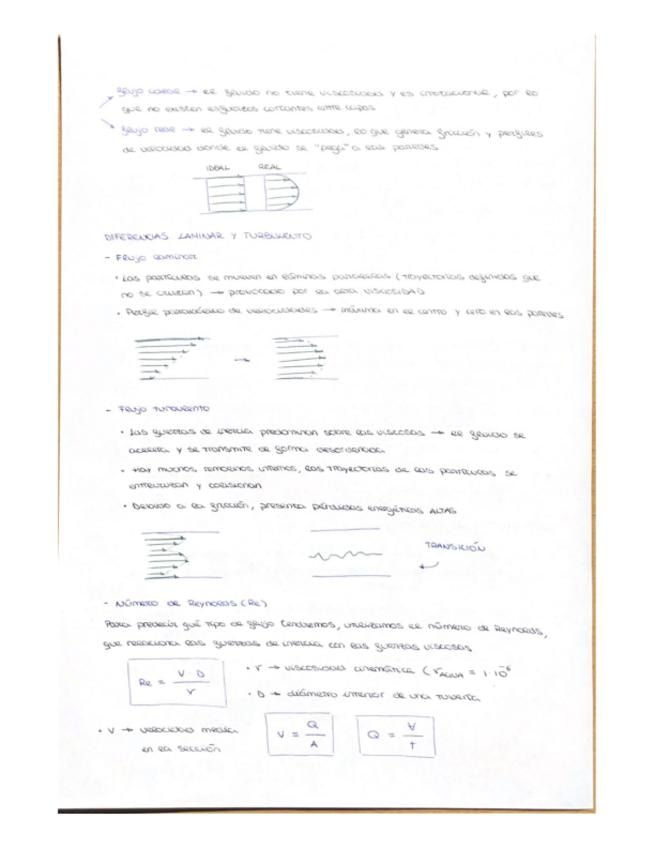 flujo ideal → el fluido no tiene viscosidad y es irrotacional, por lo
que no existen esfuerzos cortantes entre capas
flujo real → el fluido tiene viscosidad, lo que genera fricción y perfiles
de velocidad donde el fluido se "pega" a las paredes
IDEAL REAL
DIFERENCIAS LAMINAR Y TURBULENTO
- Flujo laminar
• Las partículas se mueven en láminas paralelas (trayectorias definidas que
no se cruzan) → provocado por la alta VISCOSIDAD
• Perfil parabólico de velocidades → máxima en el centro y cero en las paredes
→
- Flujo turbulento
• Las fuerzas de inercia predominan sobre las viscosas → el fluido se
acelera y se transmite de forma desordenada
• Hay muchos remolinos internos, las trayectorias de las partículas se
entrecruzan y colisionan
• Debido a la fricción, presenta pérdidas energéticas ALTAS
TRANSICIÓN
- Número de Reynolds (Re)
Para predecir qué tipo de flujo tendremos, utilizamos el número de Reynolds,
que relaciona las fuerzas de inercia con las fuerzas viscosas
Re = V · D / ν
• ν → viscosidad cinemática (ν AGUA = 1·10⁻⁶
• D → diámetro interior de una tubería
• V → velocidad media
en la sección
V = Q / A
Q = V / t